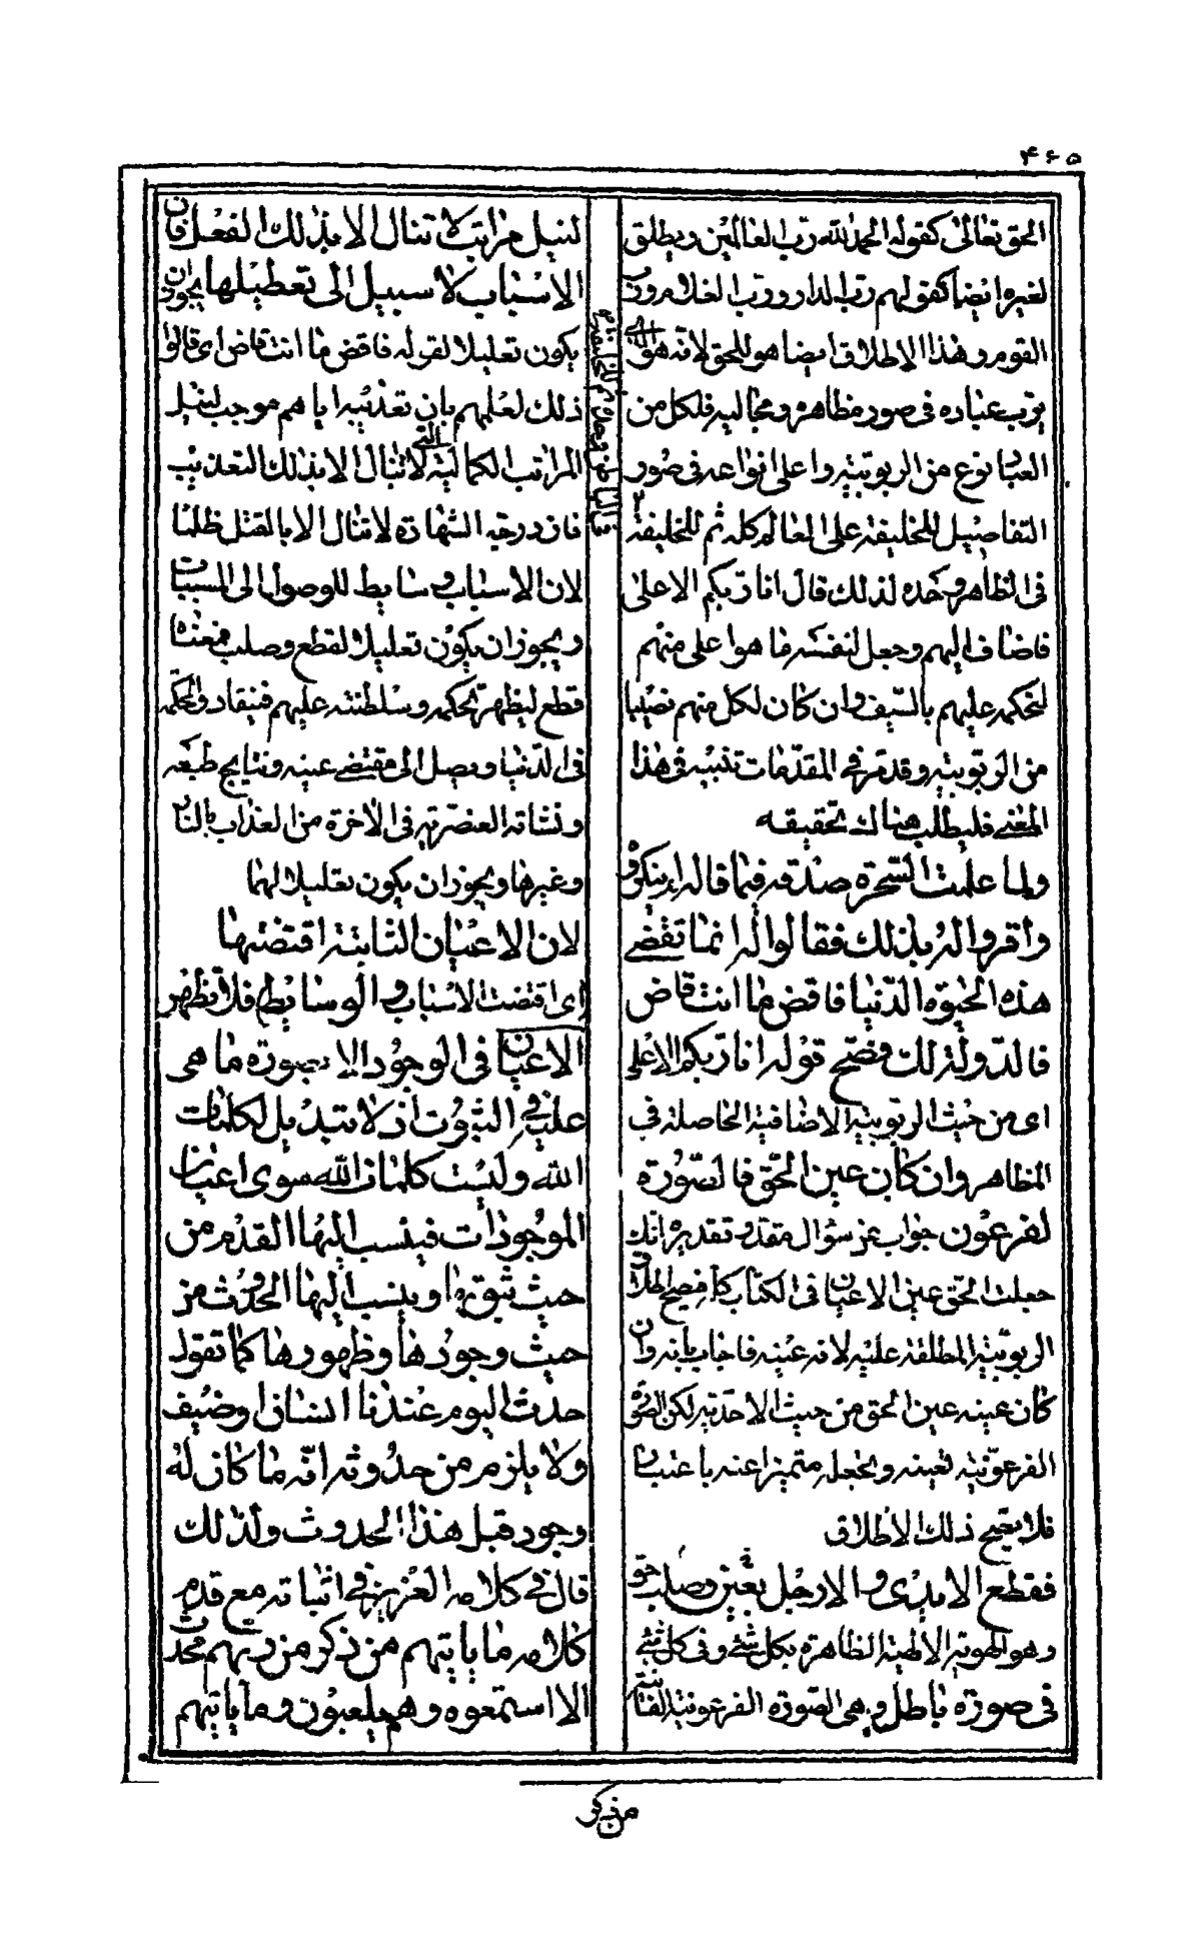 ۴۶۵
الحق تعالى كقوله الحمد لله رب العالمين ويطلق
لغيره ايضا كقولهم رب الدار ورب الغلام ورب
القوم وهذا الاطلاق ايضا هو للحق لانه هو الذى
يرب عباده فى صور مظاهره ومجاليه فلكل من
العباد نوع من الربوبية واعلى انواعه فى صور
التفاصيل للخليفة على العالم كله ثم للخليفة
فى الظاهر وحده لذلك قال انا ربكم الاعلى
فاضاف اليهم وجعل لنفسه ما هو اعلى منهم
لتحكمه عليهم بالسيف وان كان لكل منهم نصيبا
من الربوبية وقد مر فى المقدمات تنبيه فى هذا
المعنى فليطلب هناك تحقيقه
ولما علمت السحرة صدقه فيما قاله لم ينكروه
واقروا له بذلك فقالوا له انما تقضى
هذه الحيوة الدنيا فاقض ما انت قاض
فالدولة لك فصح قوله انا ربكم الاعلى
اى من حيث الربوبية الاضافية الحاصلة فى
المظاهر وان كان عين الحق فالصورة
لفرعون جواب عن سؤال مقدر تقديره انك
جعلت الحق عين الاعيان فى الكتاب كله فيصح اطلاق
الربوبية المطلقة عليه لانه عينه فاجاب بانه وان
كان عينه عين الحق من حيث الاحدية لكن الصورة
الفرعونية تعينه وتجعله متميزا عنه باعتبار
فلا يصح ذلك الاطلاق
فقطع الايدى والارجل بعين حق وصلب
وهو الهوية الالهية الظاهرة بكل شئ وفى كل شئ
فى صورة باطل وهى الصورة الفرعونية الفانية
لنيل مراتب لا تنال الا بذلك الفعل فان
الاسباب لا سبيل الى تعطيلها يجوز ان
يكون تعليلا لقوله فاقض ما انت قاض اى قالوا
ذلك لعلمهم بان تعذيبه اياهم موجب لنيل
المراتب الكمالية التى لا تنال الا بذلك التعذيب
فان درجة الشهادة لا تنال الا بالقتل ظلما
لان الاسباب وسايط للوصول الى المسببات
ويجوز ان يكون تعليلا لقطع وصلب فمعناه
قطع ليظهر تحكمه وسلطنته عليهم فينقاد والحكمه
فى الدنيا ويصل الى مقتضى عينه ونتايج طبعه
ونشاته العنصرية فى الاخرة من العذاب بالنار
وغيرها ويجوز ان يكون تعليلا لهما
لان الاعيان الثابتة اقتضتها
اى اقتضت الاسباب والوسايط فلا تظهر
الاعيان فى الوجود الا بصورة ما هى
عليه فى الثبوت اذ لا تبديل لكلمات
الله وليست كلمات الله سوى اعيان
الموجودات فينسب اليها القدم من
حيث ثبوتها وينسب اليها الحدوث من
حيث وجودها وظهورها كما تقول
حدث اليوم عندنا انسان او ضيف
ولا يلزم من حدوثه انه ما كان له
وجود قبل هذا الحدوث ولذلك
قال فى كلامه العزيز فى اتيانه مع قدم
كلامه ما ياتيهم من ذكر من ربهم محدث
الا استمعوه وهم يلعبون وما ياتيهم
من ذكر